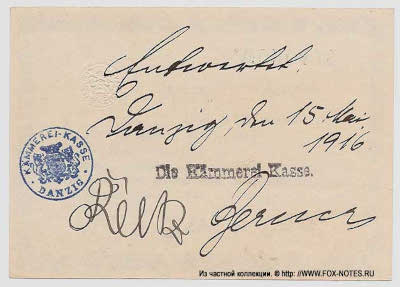 Entwertet.
Danzig, den 15. Mai
1916
KÄMMEREI-KASSE
DANZIG
Die Kämmerei-Kasse.
Из частной коллекции. © http: //WWW.FOX-NOTES.RU